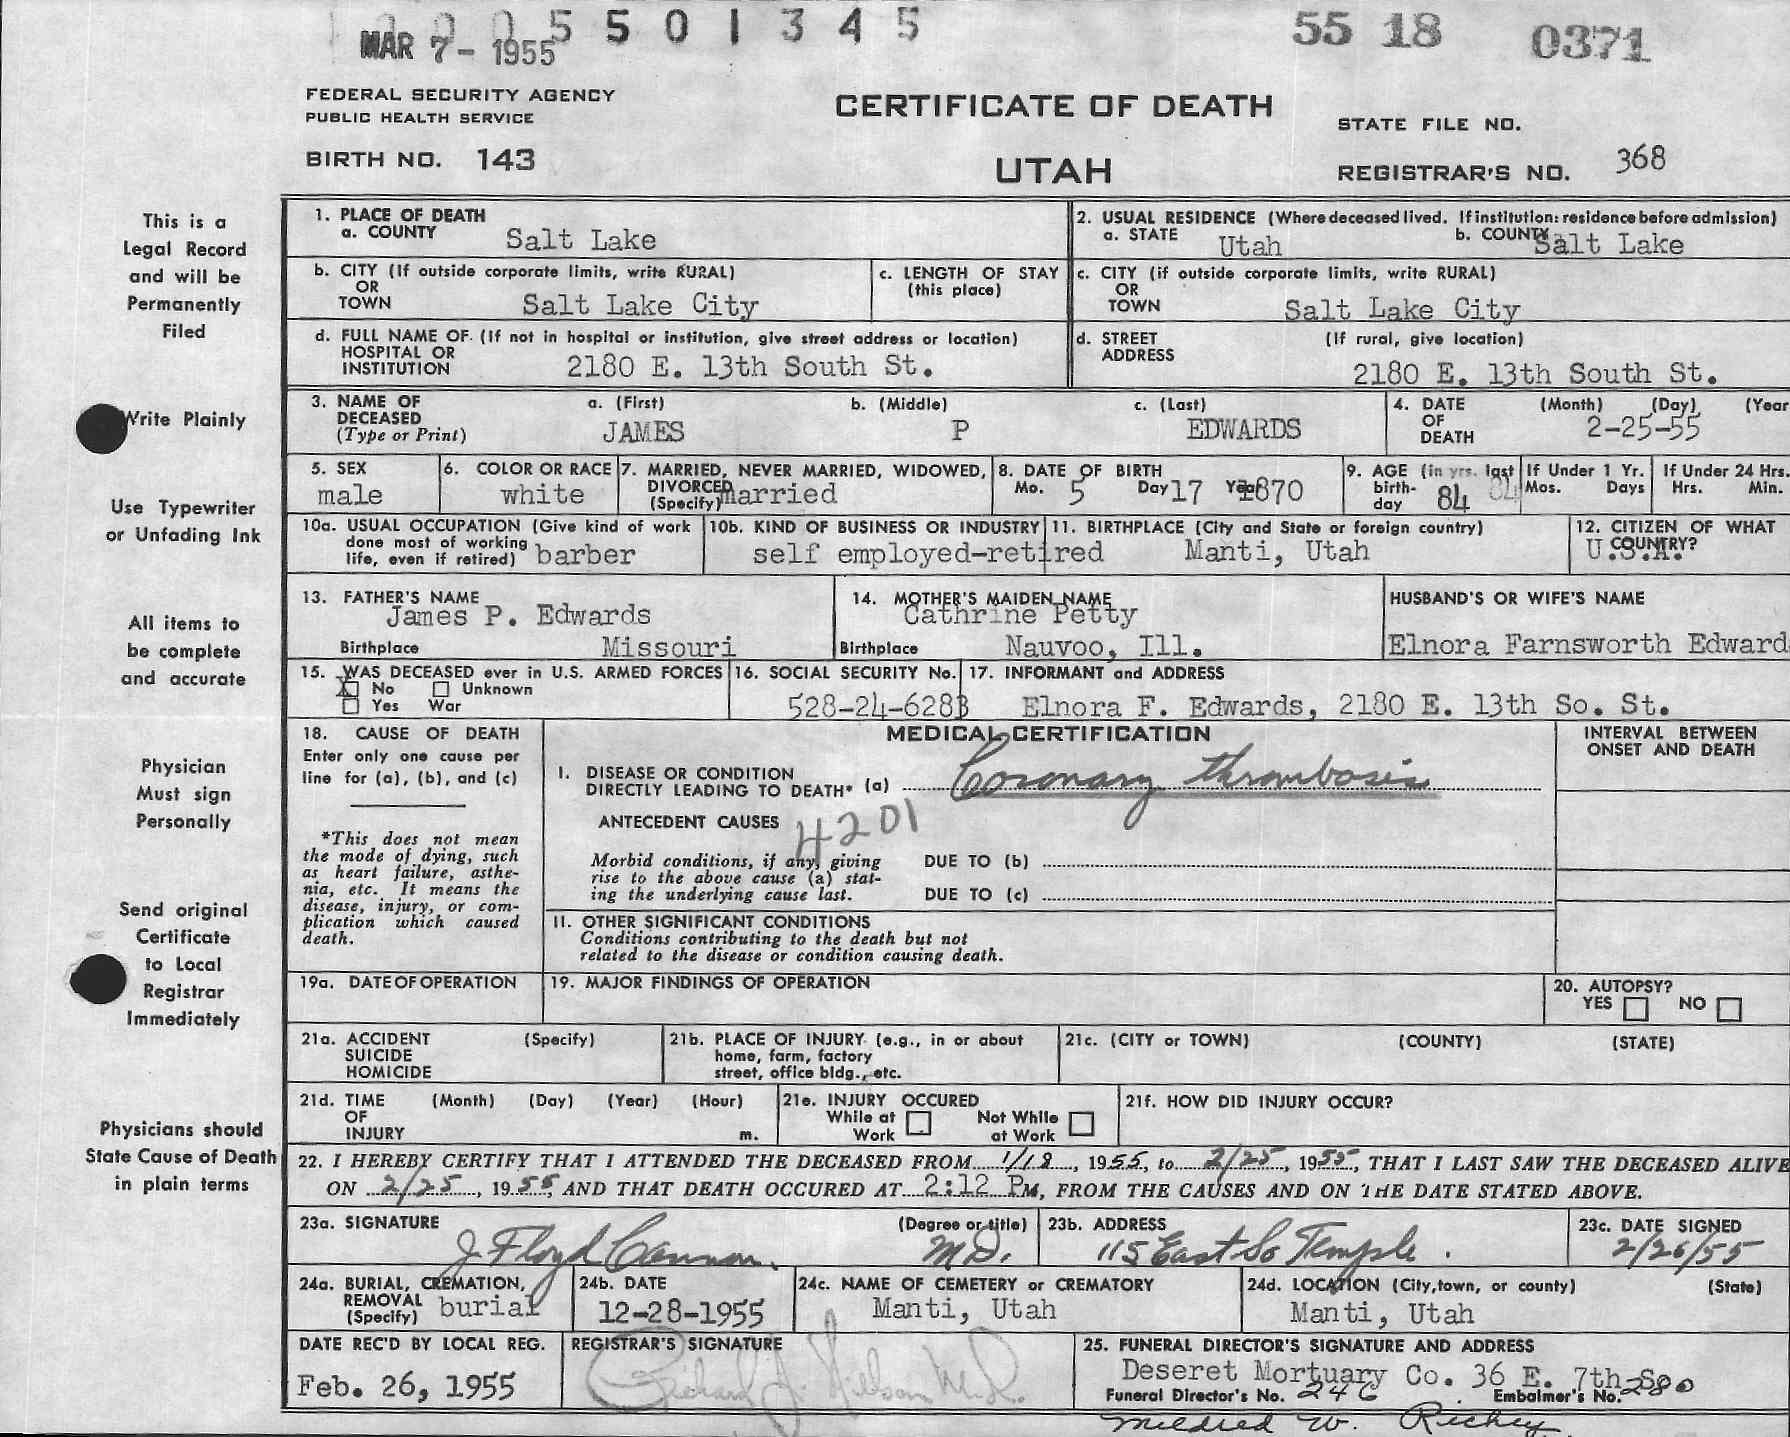 5 5 0 1 3 4 5
MAR 7- 1955
55 18 0371
FEDERAL SECURITY AGENCY
PUBLIC HEALTH SERVICE
BIRTH NO. 143
CERTIFICATE OF DEATH
UTAH
STATE FILE NO.
REGISTRAR'S NO. 368
This is a
Legal Record
and will be
Permanently
Filed
Write Plainly
Use Typewriter
or Unfading Ink
All items to
be complete
and accurate
Physician
Must sign
Personally
Send original
Certificate
to Local
Registrar
Immediately
Physicians should
State Cause of Death
in plain terms
1. PLACE OF DEATH
a. COUNTY Salt Lake
2. USUAL RESIDENCE (Where deceased lived. If institution: residence before admission)
a. STATE Utah b. COUNTY Salt Lake
b. CITY (If outside corporate limits, write RURAL)
OR
TOWN Salt Lake City
c. LENGTH OF STAY
(this place)
c. CITY (if outside corporate limits, write RURAL)
OR
TOWN Salt Lake City
d. FULL NAME OF (If not in hospital or institution, give street address or location)
HOSPITAL OR
INSTITUTION 2180 E. 13th South St.
d. STREET (If rural, give location)
ADDRESS
2180 E. 13th South St.
3. NAME OF a. (First) b. (Middle) c. (Last)
DECEASED
(Type or Print) JAMES P EDWARDS
4. DATE (Month) (Day) (Year
OF
DEATH 2-25-55
5. SEX
male
6. COLOR OR RACE
white
7. MARRIED, NEVER MARRIED, WIDOWED,
DIVORCED
(Specify) married
8. DATE OF BIRTH
Mo. 5 Day 17 Year 1870
9. AGE (in yrs. last
birth-
day 84 84
If Under 1 Yr.
Mos. Days
If Under 24 Hrs.
Hrs. Min.
10a. USUAL OCCUPATION (Give kind of work
done most of working
life, even if retired) barber
10b. KIND OF BUSINESS OR INDUSTRY
self employed-retired
11. BIRTHPLACE (City and State or foreign country)
Manti, Utah
12. CITIZEN OF WHAT
COUNTRY?
U.S.A.
13. FATHER'S NAME
James P. Edwards
Birthplace Missouri
14. MOTHER'S MAIDEN NAME
Cathrine Petty
Birthplace Nauvoo, Ill.
HUSBAND'S OR WIFE'S NAME
Elnora Farnsworth Edward
15. WAS DECEASED ever in U.S. ARMED FORCES
X No Unknown
Yes War
16. SOCIAL SECURITY No.
528-24-6283
17. INFORMANT and ADDRESS
Elnora F. Edwards, 2180 E. 13th So. St.
18. CAUSE OF DEATH
Enter only one cause per
line for (a), (b), and (c)
*This does not mean
the mode of dying, such
as heart failure, asthe-
nia, etc. It means the
disease, injury, or com-
plication which caused
death.
MEDICAL CERTIFICATION
INTERVAL BETWEEN
ONSET AND DEATH
I. DISEASE OR CONDITION
DIRECTLY LEADING TO DEATH* (a) Coronary thrombosis
ANTECEDENT CAUSES 4201
Morbid conditions, if any, giving
rise to the above cause (a) stat-
ing the underlying cause last.
DUE TO (b)
DUE TO (c)
II. OTHER SIGNIFICANT CONDITIONS
Conditions contributing to the death but not
related to the disease or condition causing death.
19a. DATE OF OPERATION
19. MAJOR FINDINGS OF OPERATION
20. AUTOPSY?
YES NO
21a. ACCIDENT (Specify)
SUICIDE
HOMICIDE
21b. PLACE OF INJURY (e.g., in or about
home, farm, factory
street, office bldg., etc.
21c. (CITY or TOWN) (COUNTY) (STATE)
21d. TIME (Month) (Day) (Year) (Hour)
OF
INJURY m.
21e. INJURY OCCURED
While at Not While
Work at Work
21f. HOW DID INJURY OCCUR?
22. I HEREBY CERTIFY THAT I ATTENDED THE DECEASED FROM 1/18, 1955, to 2/25, 1955, THAT I LAST SAW THE DECEASED ALIVE
ON 2/25, 1955, AND THAT DEATH OCCURED AT 2:12 PM, FROM THE CAUSES AND ON THE DATE STATED ABOVE.
23a. SIGNATURE (Degree or title)
J Floyd Cannon. M.D.
23b. ADDRESS
115 East So Temple.
23c. DATE SIGNED
2/26/55
24a. BURIAL, CREMATION,
REMOVAL
(Specify) burial
24b. DATE
12-28-1955
24c. NAME OF CEMETERY or CREMATORY
Manti, Utah
24d. LOCATION (City, town, or county) (State)
Manti, Utah
DATE REC'D BY LOCAL REG.
Feb. 26, 1955
REGISTRAR'S SIGNATURE
Richard J. Nelson M.D.
25. FUNERAL DIRECTOR'S SIGNATURE AND ADDRESS
Deseret Mortuary Co. 36 E. 7th So
Funeral Director's No. 246 Embalmer's No. 280
Mildred W. Richey